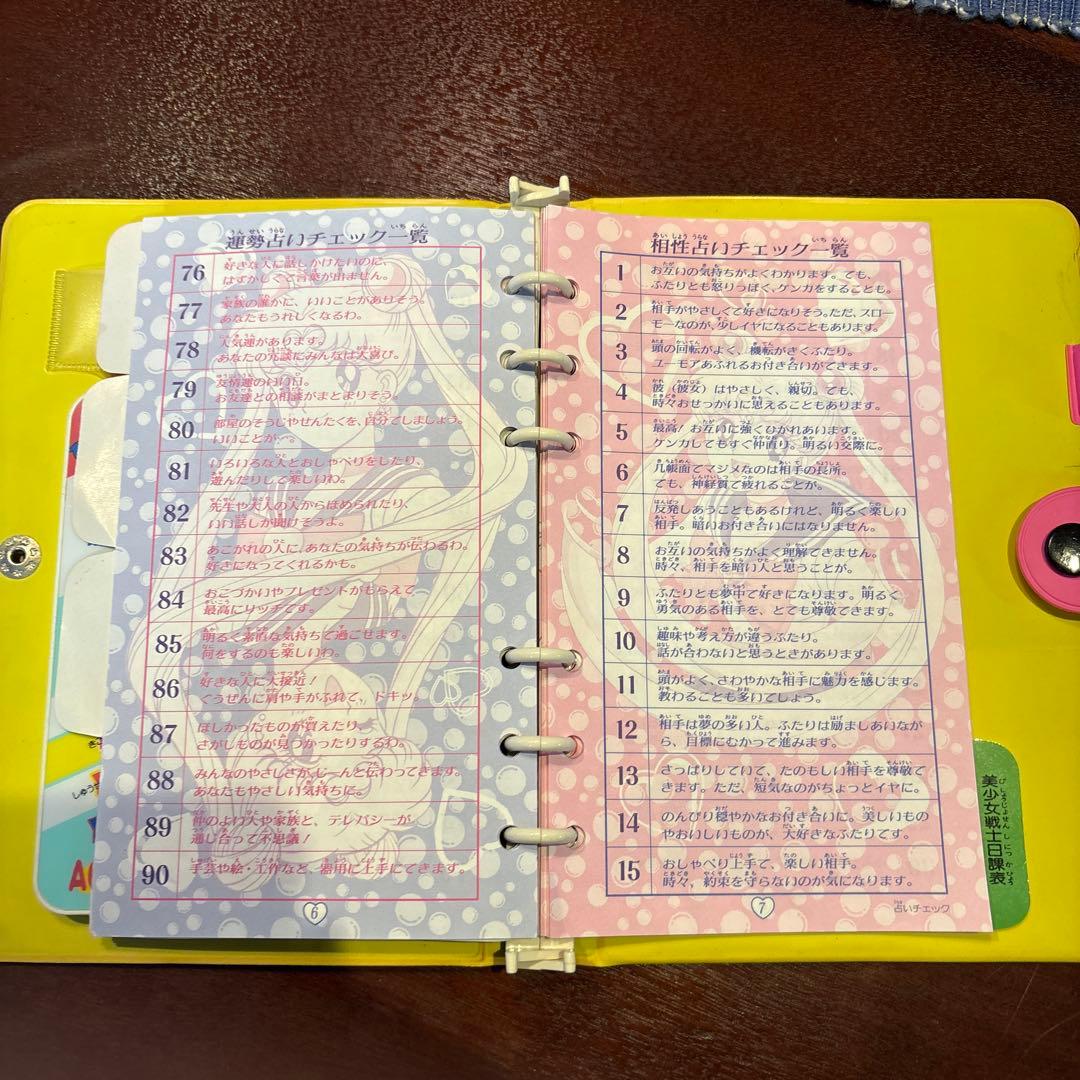 運勢占いチェック一覧
76 好きな人に話しかけたいのに、
はずかしくて言葉が出ません。
77 家族の誰かに、いいことがありそう。
あなたもうれしくなるわ。
78 人気運があります。
あなたの冗談にみんなは大喜び。
79 友情運のいい日。
お友達との相談がまとまりそう。
80 部屋のそうじやせんたくを、自分でしましょう。
いいことが〜。
81 いろいろな人とおしゃべりをしたり、
遊んだりして楽しいわ。
82 先生や大人の人からほめられたり、
いい話しが聞けそうよ。
83 あこがれの人に、あなたの気持ちが伝わるわ。
好きになってくれるかも。
84 おこづかいやプレゼントがもらえて、
最高にリッチです。
85 明るく素直な気持ちで過ごせます。
何をするのも楽しいわ。
86 好きな人に大接近!
ぐうぜんに肩や手がふれて、ドキッ。
87 ほしかったものが買えたり、
さがしものが見つかったりするわ。
88 みんなのやさしさが、じーんと伝わってきます。
あなたもやさしい気持ちに。
89 仲のよい人や家族と、テレパシーが
通じ合って不思議!
90 手芸や絵・工作など、器用に上手にできます。
6
相性占いチェック一覧
1 お互いの気持ちがよくわかります。でも、
ふたりとも怒りっぽく、ケンカをすることも。
2 相手がやさしくて好きになりそう。ただ、スロー
モーなのが、少しイヤになることもあります。
3 頭の回転がよく、機転がきくふたり。
ユーモアあふれるお付き合いができます。
4 彼(彼女)はやさしく、親切。でも、
時々おせっかいに思えることもあります。
5 最高!お互いに強くひかれあいます。
ケンカしてもすぐ仲直り。明るい交際に。
6 几帳面でマジメなのは相手の長所。
でも、神経質で疲れることが。
7 反発しあうこともあるけれど、明るく楽しい
相手。暗いお付き合いにはなりません。
8 お互いの気持ちがよく理解できません。
時々、相手を暗い人と思うことが。
9 ふたりとも夢中で好きになります。明るく
勇気のある相手を、とても尊敬できます。
10 趣味や考え方が違うふたり。
話が合わないと思うときがあります。
11 頭がよく、さわやかな相手に魅力を感じます。
教わることも多いでしょう。
12 相手は夢の多い人。ふたりは励ましあいなが
ら、目標にむかって進みます。
13 さっぱりしていて、たのもしい相手を尊敬で
きます。ただ、短気なのがちょっとイヤに。
14 のんびり穏やかなお付き合いに。美しいもの
やおいしいものが、大好きなふたりです。
15 おしゃべり上手で、楽しい相手。
時々、約束を守らないのが気になります。
7
占いチェック
美少女戦士日課表